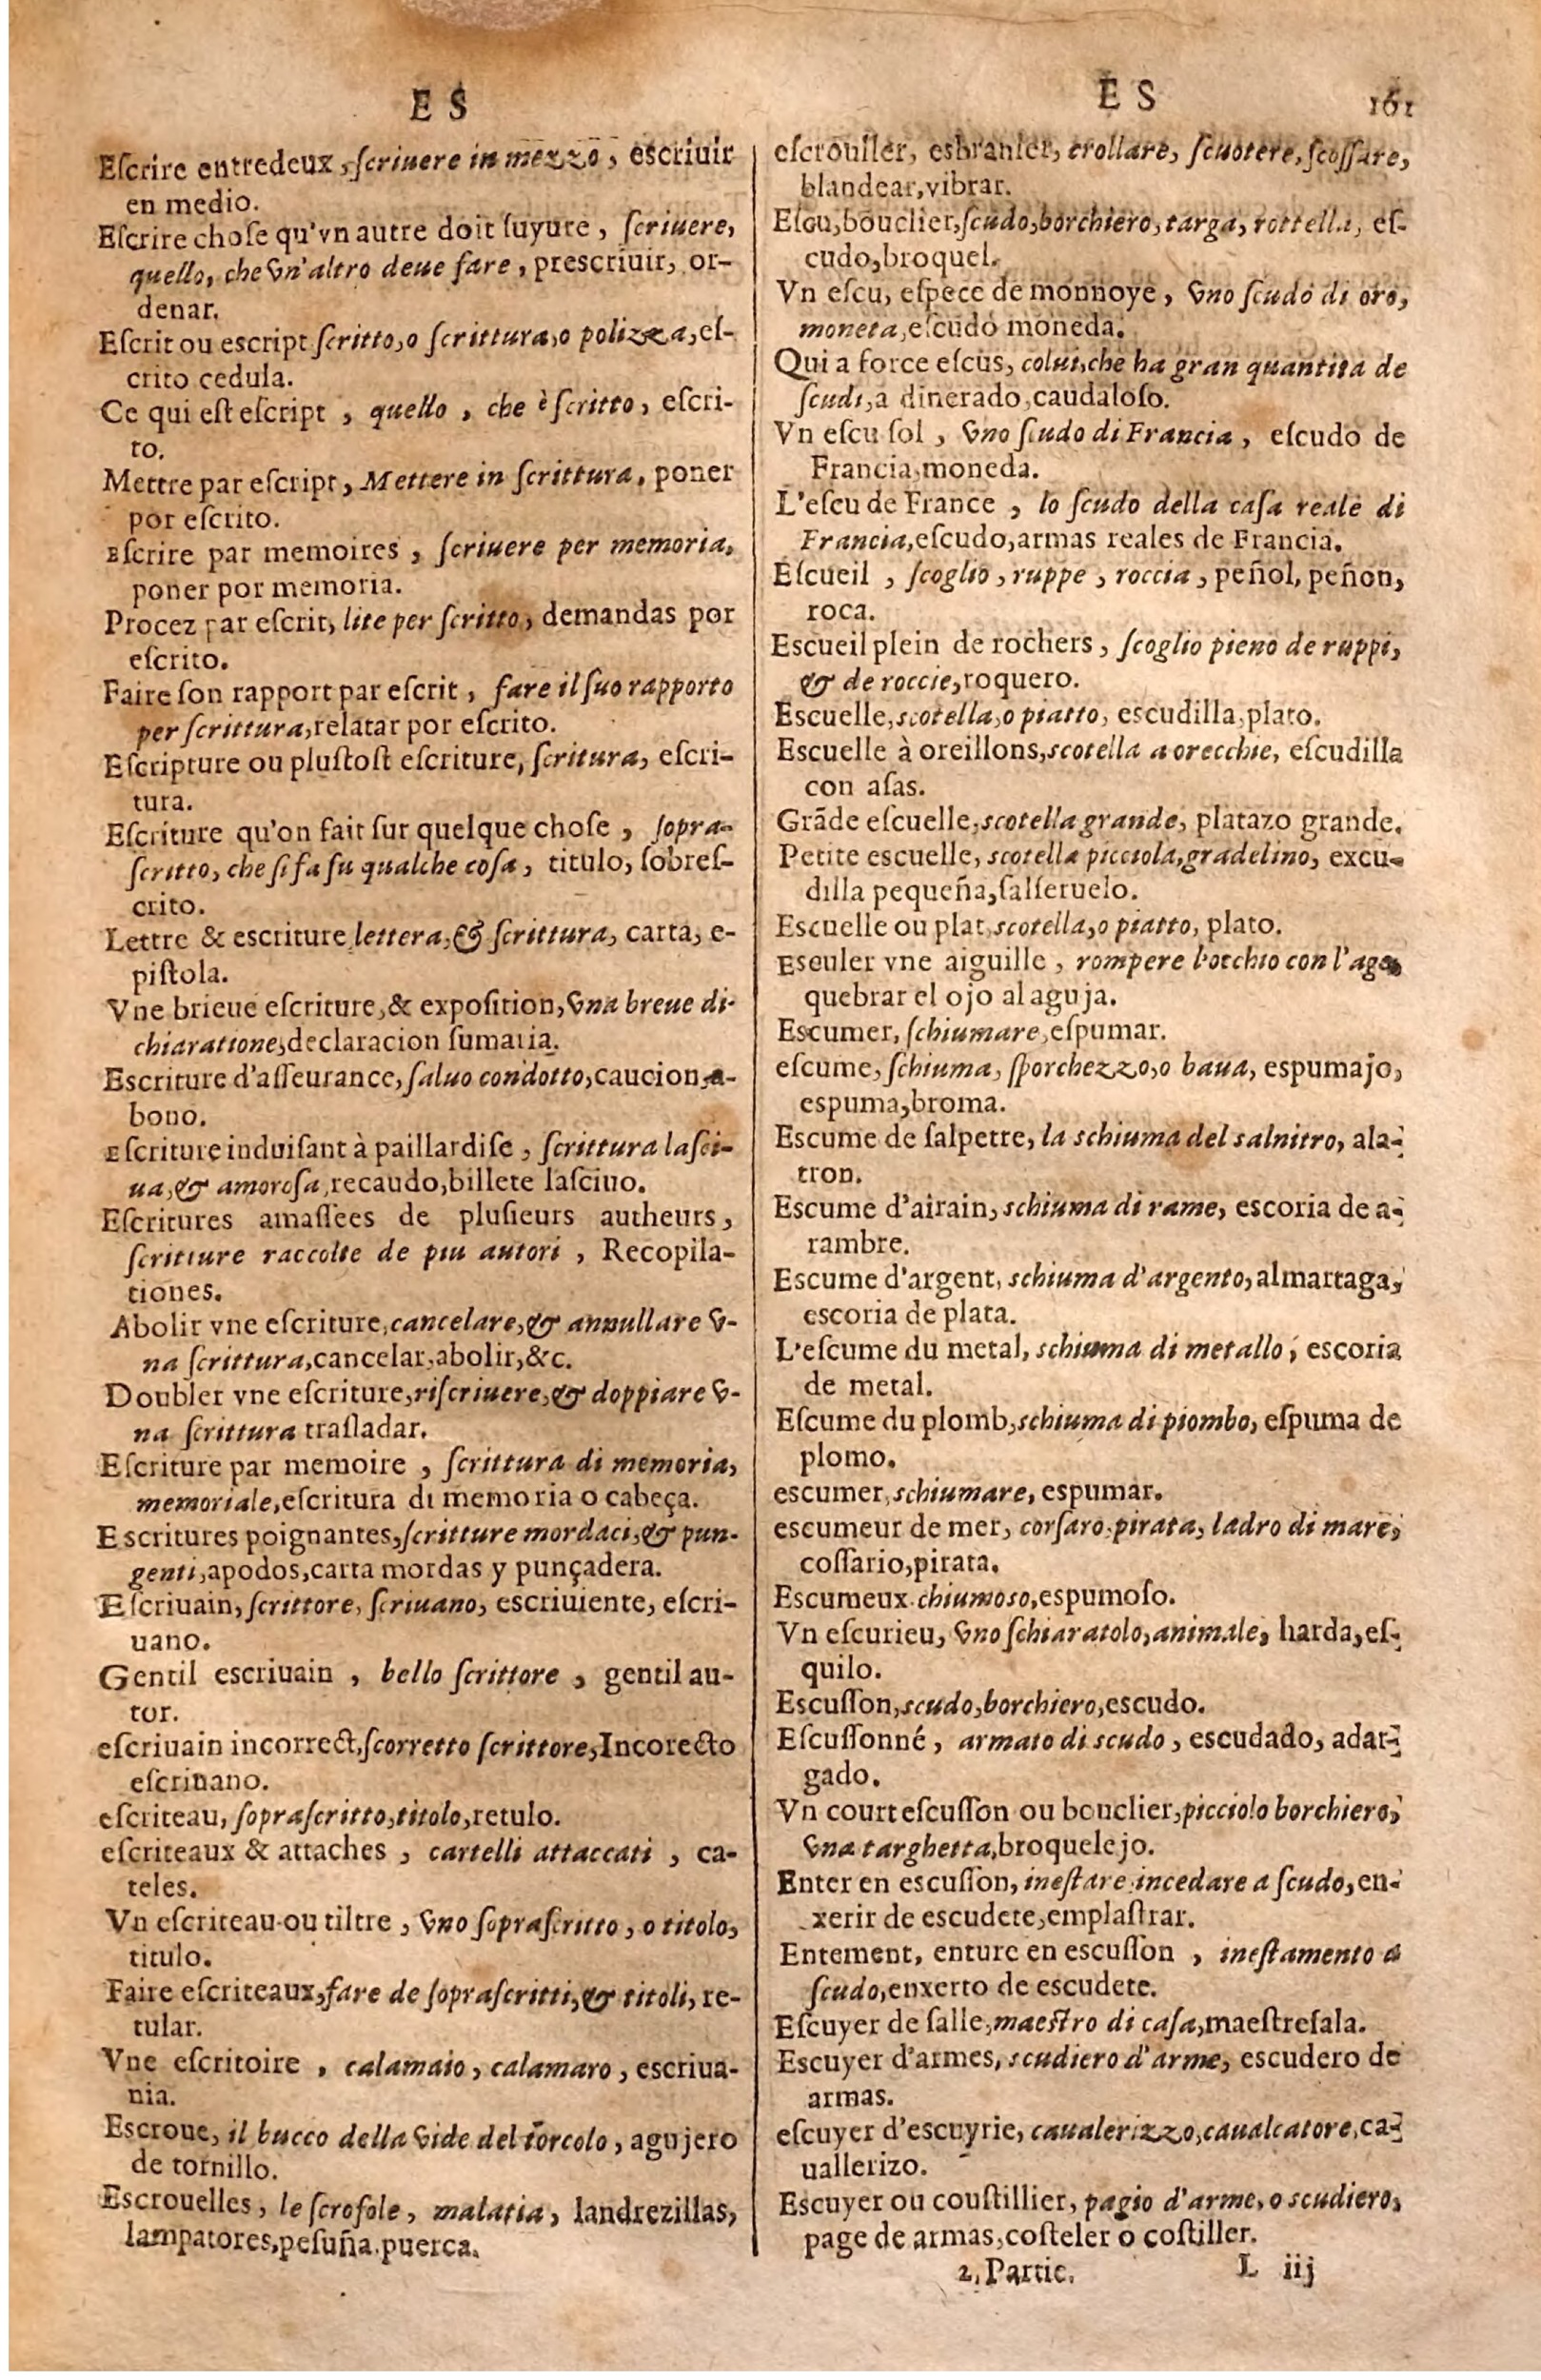 E S
Eſcrire entredeux, ſcriuere in mezzo, eſcriuir
en medio.
Eſcrire choſe qu'vn autre doit ſuyure, ſcriuere,
quello, che vn'altro deue fare, preſcriuir, or-
denar.
Eſcrit ou escript ſcritto, o ſcrittura, o polizza, eſ-
crito cedula.
Ce qui eſt eſcript, quello, che è ſcritto, eſcri-
to.
Mettre par eſcript, Mettere in ſcrittura, poner
por eſcrito.
Eſcrire par memoires, ſcriuere per memoria,
poner por memoria.
Procez par eſcrit, lite per ſcritto, demandas por
eſcrito.
Faire ſon rapport par eſcrit, fare il ſuo rapporto
per ſcrittura, relatar por eſcrito.
Eſcripture ou pluſtoſt eſcriture, ſcritura, eſcri-
tura.
Eſcriture qu'on fait ſur quelque choſe, ſopra-
ſcritto, che ſi fa ſu qualche coſa, titulo, ſobreſ-
crito.
Lettre & escriture lettera, & ſcrittura, carta, e-
piſtola.
Vne brieue eſcriture, & expoſition, vna breue di-
chiaratione, declaracion ſumaria.
Escriture d'aſſeurance, ſaluo condotto, caucion, a-
bono.
Eſcriture induiſant à paillardiſe, ſcrittura laſci-
ua, & amoroſa, recaudo, billete laſciuo.
Eſcritures amaſſees de pluſieurs autheurs,
ſcritture raccolte de piu autori, Recopila-
tiones.
Abolir vne eſcriture, cancelare, & annullare v-
na ſcrittura, cancelar, abolir, &c.
Doubler vne eſcriture, riſcriuere, & doppiare v-
na ſcrittura traſladar.
Eſcriture par memoire, ſcrittura di memoria,
memoriale, eſcritura di memoria o cabeça.
Escritures poignantes, ſcritture mordaci, & pun-
genti, apodos, carta mordas y punçadera.
Eſcriuain, ſcrittore, ſcriuano, escriuiente, eſcri-
uano.
Gentil escriuain, bello ſcrittore, gentil au-
tor.
eſcriuain incorrect, ſcorretto ſcrittore, Incorecto
eſcriuano.
eſcriteau, ſopraſcritto, titolo, retulo.
eſcriteaux & attaches, cartelli attaccati, ca-
teles.
Vn eſcriteau ou tiltre, vno ſopraſcritto, o titolo,
titulo.
Faire eſcriteaux, fare de ſopraſcritti, & titoli, re-
tular.
Vne eſcritoire, calamaio, calamaro, escriua-
nia.
Escroue, il bucco della vide del torcolo, agujero
de tornillo.
Escrouelles, le ſcrofole, malatia, landrezillas,
lampatores, peſuña. puerca.
E S 161
eſcrouller, esbranler, crollare, ſcuotere, ſcoſſare,
blandear, vibrar.
Eſcu, bouclier, ſcudo, borchiero, targa, rottella, eſ-
cudo, broquel.
Vn eſcu, eſpece de monnoye, vno ſcudo di oro,
moneta, eſcudo moneda.
Qui a force eſcus, colui, che ha gran quantita de
ſcudi, a dinerado, caudaloſo.
Vn eſcu ſol, vno ſcudo di Francia, eſcudo de
Francia, moneda.
L'eſcu de France, lo ſcudo della caſa reale di
Francia, eſcudo, armas reales de Francia.
Eſcueil, ſcoglio, ruppe, roccia, peñol, peñon,
roca.
Escueil plein de rochers, ſcoglio pieno de ruppi,
& de roccie, roquero.
Escuelle, scotella, o piatto, escudilla, plato.
Escuelle à oreillons, scotella a orecchie, eſcudilla
con aſas.
Grāde eſcuelle, scotella grande, platazo grande.
Petite escuelle, scotella picciola, gradelino, excu-
dilla pequeña, ſalſeruelo.
Escuelle ou plat, scotella, o piatto, plato.
Esculer vne aiguille, rompere l'occhio con l'ago,
quebrar el ojo al aguja.
Escumer, ſchiumare, eſpumar.
eſcume, ſchiuma, ſporchezzo, o baua, espumajo,
espuma, broma.
Escume de ſalpetre, la schiuma del salnitro, ala-
tron.
Escume d'airain, schiuma di rame, escoria de a-
rambre.
Escume d'argent, schiuma d'argento, almartaga,
escoria de plata.
L'eſcume du metal, schiuma di metallo, escoria
de metal.
Eſcume du plomb, schiuma di piombo, eſpuma de
plomo.
escumer, schiumare, espumar.
escumeur de mer, corſaro, pirata, ladro di mare,
coſſario, pirata.
Escumeux chiumoso, espumoſo.
Vn eſcurieu, vno ſchiaratolo, animale, harda, eſ-
quilo.
Escuſſon, scudo, borchiero, escudo.
Eſcuſſonné, armato di scudo, escudado, adar-
gado.
Vn court eſcuſſon ou bouclier, picciolo borchiero,
vna targhetta, broquelejo.
Enter en escuſſon, ineſtare, incedare a ſcudo, en-
xerir de escudete, emplaſtrar.
Entement, enture en escuſſon, ineſtamento a
ſcudo, enxerto de escudete.
Eſcuyer de ſalle, maeſtro di caſa, maeſtreſala.
Escuyer d'armes, scudiero d'arme, escudero de
armas.
eſcuyer d'eſcuyrie, caualerizzo, caualcatore, ca-
uallerizo.
Escuyer ou couſtillier, pagio d'arme, o scudiero,
page de armas, coſteler o coſtiller.
2. Partie. L iij